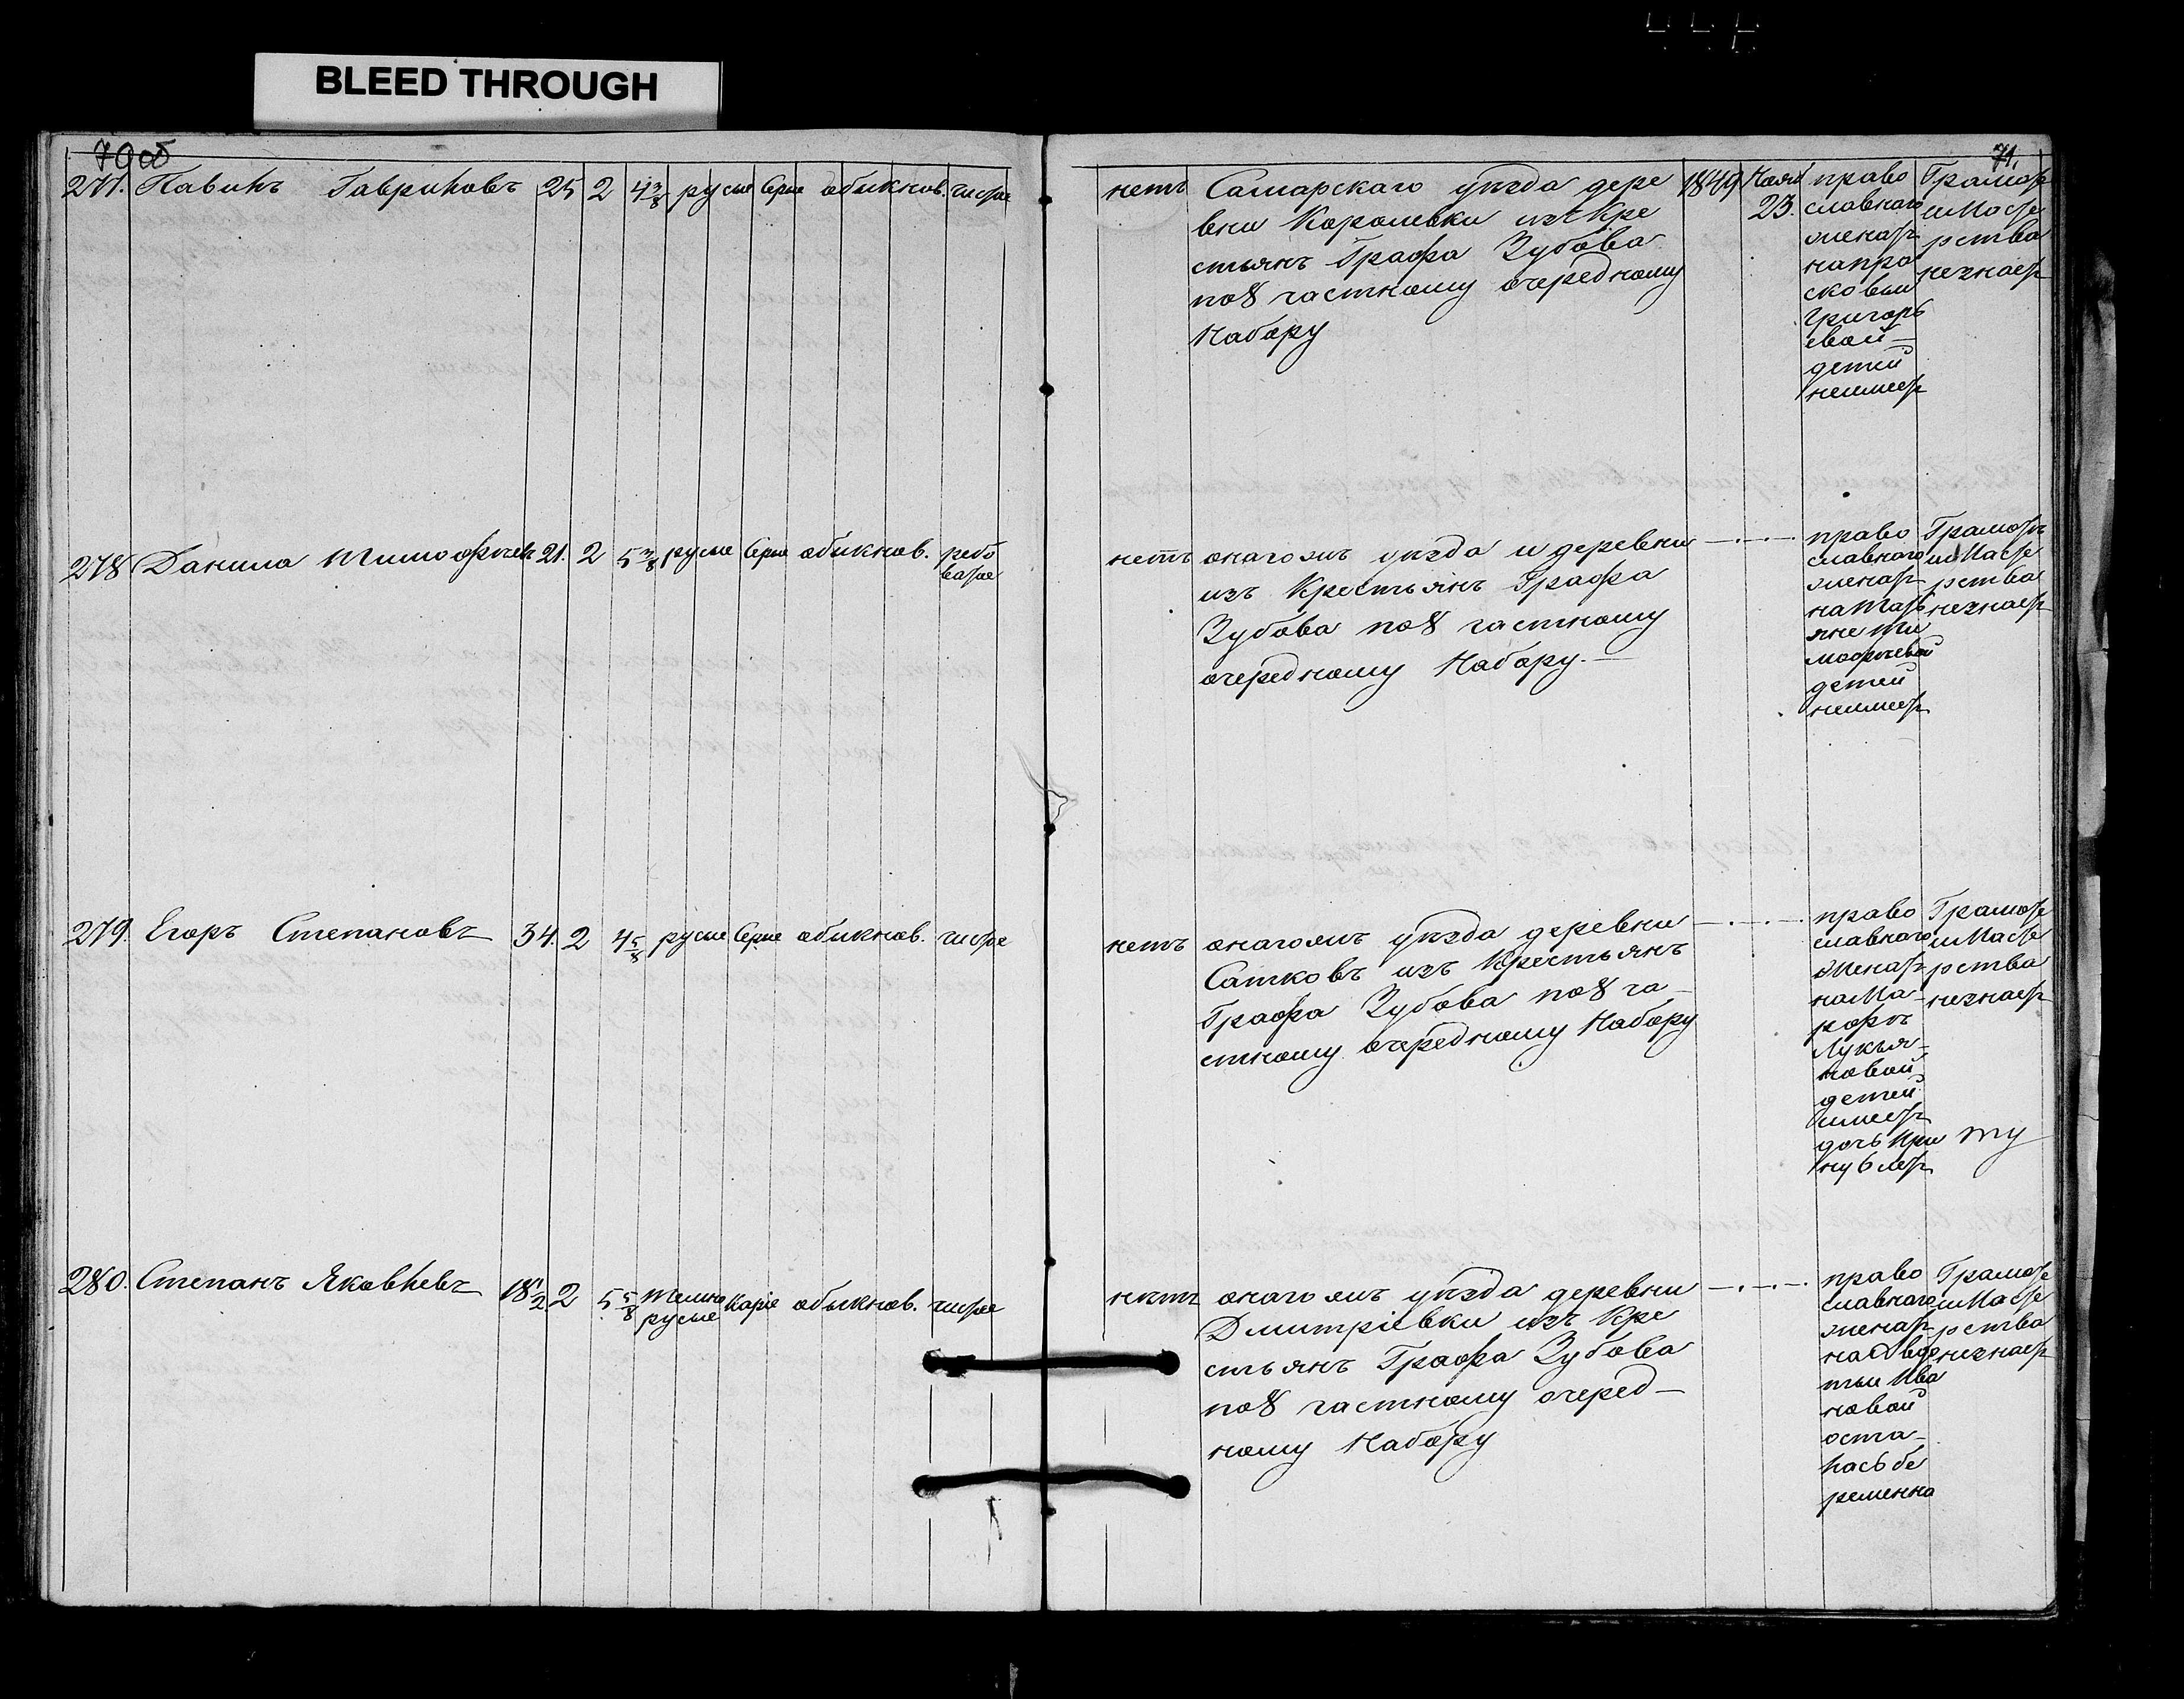 BLEED THROUGH
70 об
71.
277. Павилъ Гавриловъ 25 2 4 3/8 русые Серые обыкнов. чистое
нетъ Самарскаго уѣзда дере
вни Королевки изъ Кре
стьянъ Графа Зубова
по 8 частному очередному
Набору
1849 Нояб
23.
право
славнаго
женатъ
на пра
сковьи
Григорь
евой —
детей
неимеетъ
Грамотѣ
и Масте
рства
незнаетъ
278 Данила Тимофѣевъ 21. 2 5 3/8 русые Серые обыкнов. рябо
ватое
нетъ онагожъ уѣзда и деревни
изъ Крестьянъ Графа
Зубова по 8 частному
очередному Набору. —
право
славнаго
женатъ
на Тать
яне Ти
мофѣевой
детей
неимеетъ
Грамотѣ
и Масте
рства
незнаетъ
279. Егоръ Степановъ 34. 2 4 5/8 русые Серые обыкнов. чистое
нетъ онагожъ уѣзда деревни
Сатковъ изъ Крестьянъ
Графа Зубова по 8 ча-
стному очередному Набору
право
славнаго
женатъ
на Ма-
рофѣ
Лукья-
новой
детей
имеетъ
дочь Ири
ну 6 летъ
Грамотѣ
и Масте
рства
незнаетъ
280. Степанъ Яковлевъ 18 1/2 2 5 5/8 темно
русые Каріе обыкнов. чистое
нѣтъ онагожъ уѣзда деревни
Дмитріевки изъ Кре
стьянъ Графа Зубова
по 8 частному очеред-
ному Набору
право
славнаго
женатъ
на Авдо
тьи Ива
новой
оста-
лась бе
ременна
Грамотѣ
и Масте
рства
незнаетъ